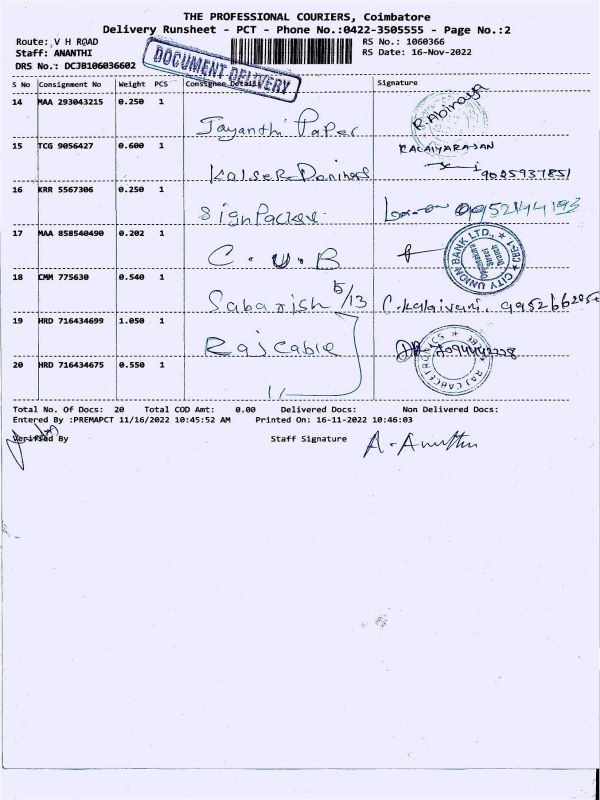 THE PROFESSIONAL COURIERS, Coimbatore
Delivery Runsheet - PCT - Phone No.:0422-3505555 - Page No.:2
Route: V H ROAD
RS No.: 1060366
Staff: ANANTHI
RS Date: 16-Nov-2022
DRS No.: DCJB106036602
DOCUMENT DELIVERY
S No Consignment No Weight PCS Consignee Details Signature
14 MAA 293043215 0.250 1
Jayanthi Paper R.Abinaya
15 TCG 9056427 0.600 1 KALAIYARASAN
9025937851
16 KRR 5567306 0.250 1
Sign Packer 9952144193
17 MAA 858540490 0.202 1
C.U.B
CITY UNION BANK LTD., CBE-1
18 CMM 775630 0.540 1
Sabarish 5/13 C.Kalaivani,
19 HRD 716434699 1.050 1
Raj Cable
20 HRD 716434675 0.550 1
Total No. Of Docs: 20 Total COD Amt: 0.00 Delivered Docs: Non Delivered Docs:
Entered By :PREMAPCT 11/16/2022 10:45:52 AM Printed On: 16-11-2022 10:46:03
Verified By Staff Signature